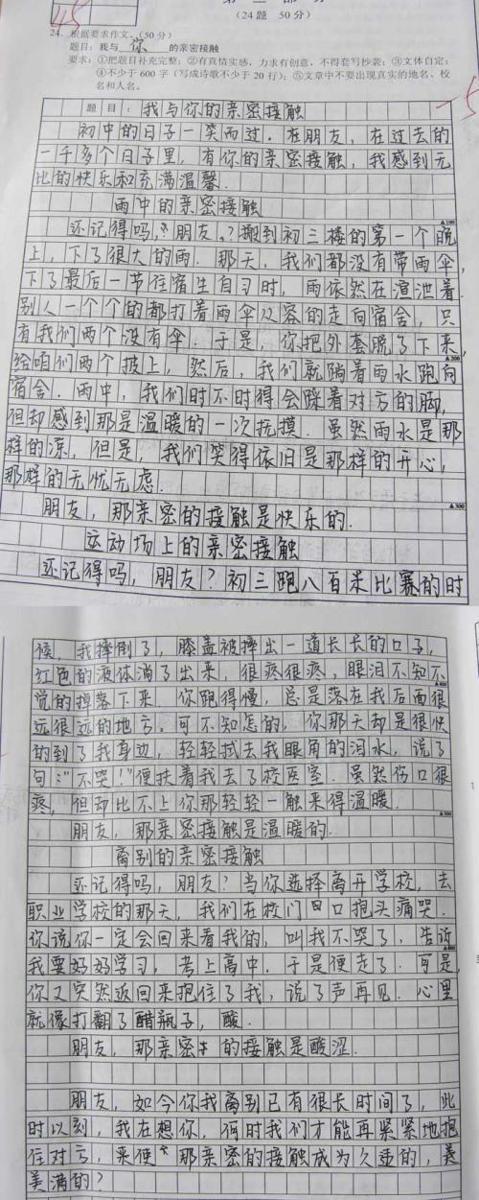 45
第二部分
（24题 50分）
24. 根据要求作文。（50分）
题目：我与 你 的亲密接触
要求：①把题目补充完整；②有真情实感，力求有创意，不得套写抄袭；③文体自定；
④不少于600字（写成诗歌不少于20行）；⑤文章中不要出现真实的地名、校
名和人名。
-5
题目：我与你的亲密接触
初中的日子一笑而过．在朋友，在过去的
一千多个日子里，有你的亲密接触，我感到无
比的快乐和充满温馨．
雨中的亲密接触
还记得吗，朋友，？搬到初三楼的第一个晚
上，下了很大的雨．那天，我们都没有带雨伞，
下了最后一节住宿生自习时，雨依然在渲泄着．
别人一个个的都打着雨伞从容的走向宿舍，只
有我们两个没有伞．于是，你把外套脱了下来，
给咱们两个披上，然后，我们就踏着雨水跑向
宿舍．雨中，我们时不时得会踩着对方的脚，
但却感到那是温暖的一次抚摸．虽然雨水是那
样的凉，但是，我们笑得依旧是那样的开心，
那样的无忧无虑．
朋友，那亲密的接触是快乐的．
运动场上的亲密接触
还记得吗，朋友？初三跑八百米比赛的时
候，我摔倒了，膝盖被摔出一道长长的口子，
红色的液体淌了出来，很疼很疼，眼泪不知不
觉的掉落下来．你跑得慢，总是落在我后面很
远很远的地方。可不知怎的，你那天却是很快
的到了我身边，轻轻拭去我眼角的泪水，说了
句：“不哭！”便扶着我去了校医室．虽然伤口很
疼，但却比不上你那轻轻一触来得温暖．
朋友，那亲密接触是温暖的．
离别的亲密接触
还记得吗，朋友？当你选择离开学校，去
职业学校的那天，我们在校门口抱头痛哭．
你说你一定会回来看我的，叫我不哭了，告诉
我要好好学习，考上高中．于是便走了．可是，
你又突然返回来抱住了我，说了声再见．心里
就像打翻了醋瓶子，酸．
朋友，那亲密的接触是酸涩．
朋友，如今你我离别已有很长时间了，此
时以刻，我在想你，何时我们才能再紧紧地抱
住对方，来使那亲密的接触成为久违的，美
美满的？